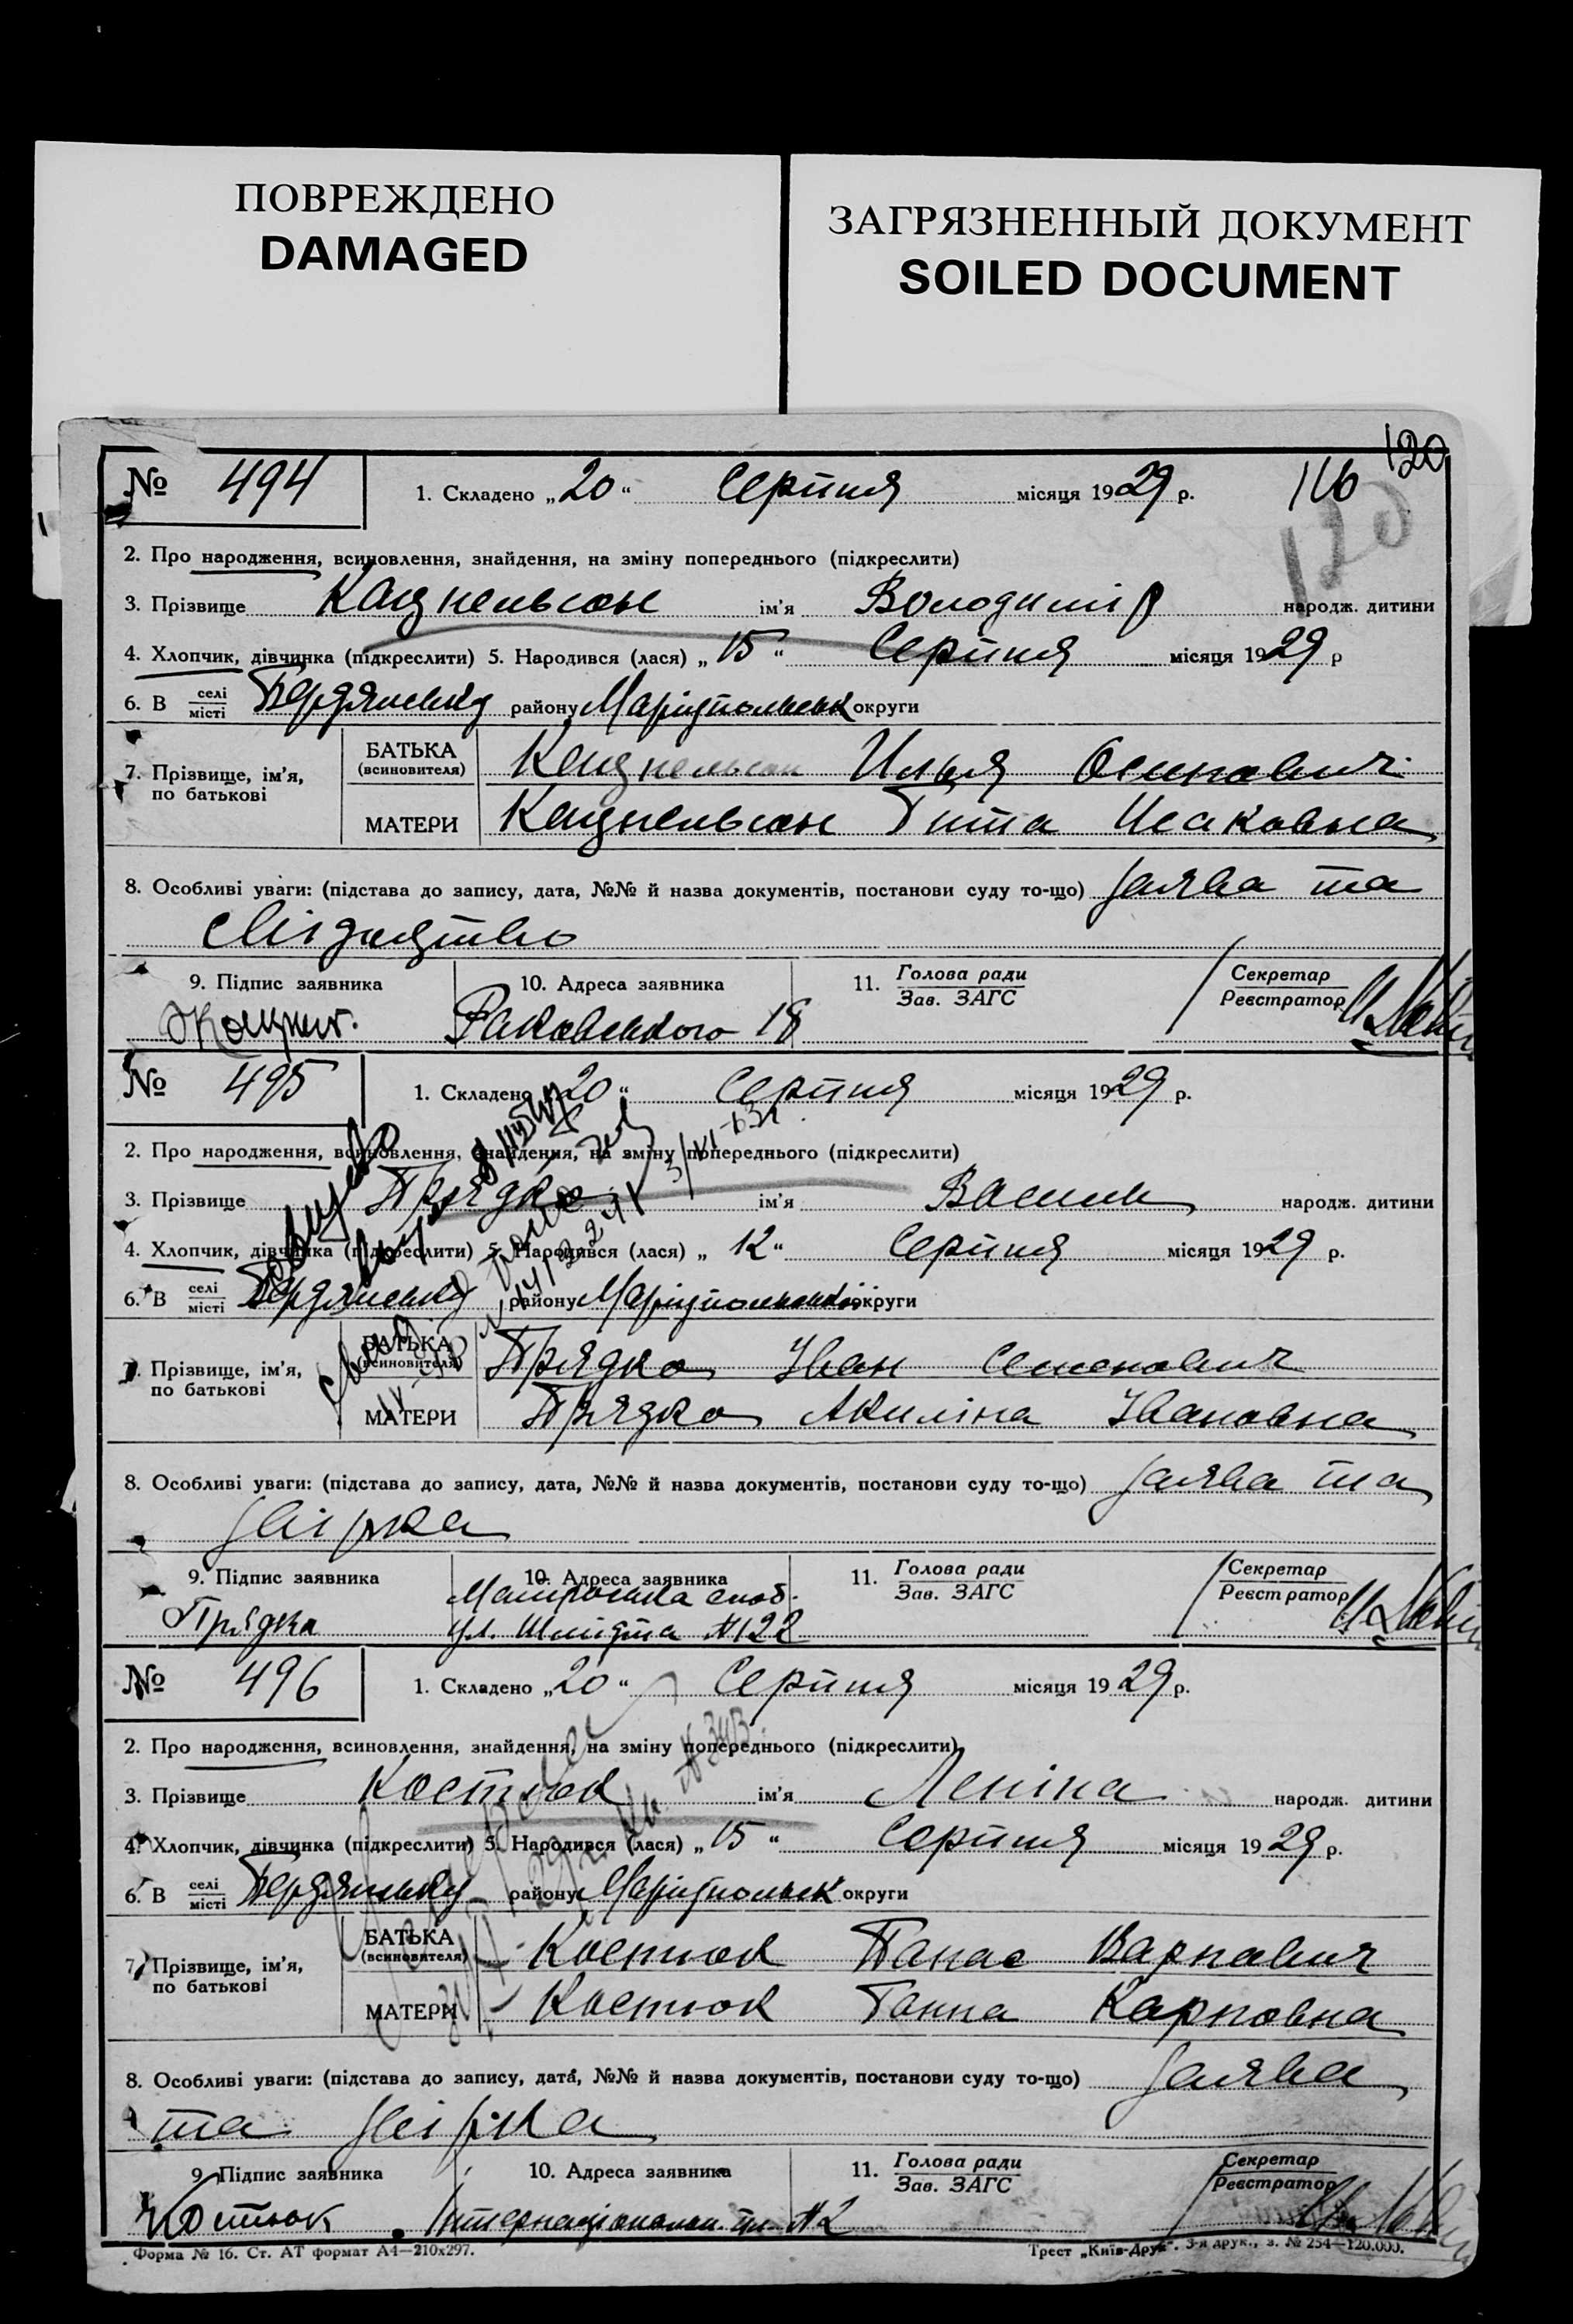 ПОВРЕЖДЕНО
DAMAGED
ЗАГРЯЗНЕННЫЙ ДОКУМЕНТ
SOILED DOCUMENT
120
116
120
№ 494 1. Складено „20“ Серпня місяця 1929 р.
2. Про народження, всиновлення, знайдення, на зміну попереднього (підкреслити)
3. Прізвище Кацнельсон ім’я Володимір народж. дитини
4. Хлопчик, дівчинка (підкреслити) 5. Народився (лася) „15“ Серпня місяця 1929 р
6. В селі місті Бердянську району Маріупольськ округи
7. Прізвище, ім’я, по батькові
БАТЬКА (всиновителя) Кацнельсон Илья Осипович
МАТЕРИ Кацнельсон Гита Исаковна
8. Особливі уваги: (підстава до запису, дата, №№ й назва документів, постанови суду то-що) заява та
свідоцтво
9. Підпис заявника 10. Адреса заявника 11. Голова ради Зав. ЗАГС Секретар Реєстратор
Раковського 18
№ 495 1. Складено „20“ Серпня місяця 1929 р.
2. Про народження, всиновлення, знайдення, на зміну попереднього (підкреслити)
3. Прізвище Прядко ім’я Василь народж. дитини
4. Хлопчик, дівчинка (підкреслити) 5. Народився (лася) „12“ Серпня місяця 1929 р.
6. В селі місті Бердянську району Маріупольської округи
7. Прізвище, ім’я, по батькові
БАТЬКА (всиновителя) Прядко Іван Семенович
МАТЕРИ Прядко Акиліна Івановна
8. Особливі уваги: (підстава до запису, дата, №№ й назва документів, постанови суду то-що) заява та
звірка
9. Підпис заявника 10. Адреса заявника 11. Голова ради Зав. ЗАГС Секретар Реєстратор
Прядко Матроська слоб.
ул. Шмідта №122
№ 496 1. Складено „20“ Серпня місяця 1929 р.
2. Про народження, всиновлення, знайдення, на зміну попереднього (підкреслити)
3. Прізвище Костюк ім’я Леніна народж. дитини
4. Хлопчик, дівчинка (підкреслити) 5. Народився (лася) „15“ Серпня місяця 1929 р.
6. В селі місті Бердянську району Маріупольськ округи
7. Прізвище, ім’я, по батькові
БАТЬКА (всиновителя) Костюк Панас Карпович
МАТЕРИ Костюк Ганна Карповна
8. Особливі уваги: (підстава до запису, дата, №№ й назва документів, постанови суду то-що) заява
та звірка
9. Підпис заявника 10. Адреса заявника 11. Голова ради Зав. ЗАГС Секретар Реєстратор
Костюк №2
Форма № 16. Ст. АТ формат А4—210х297.
Трест „Київ-Друк“. 3-я друк., з. № 254—120.000.